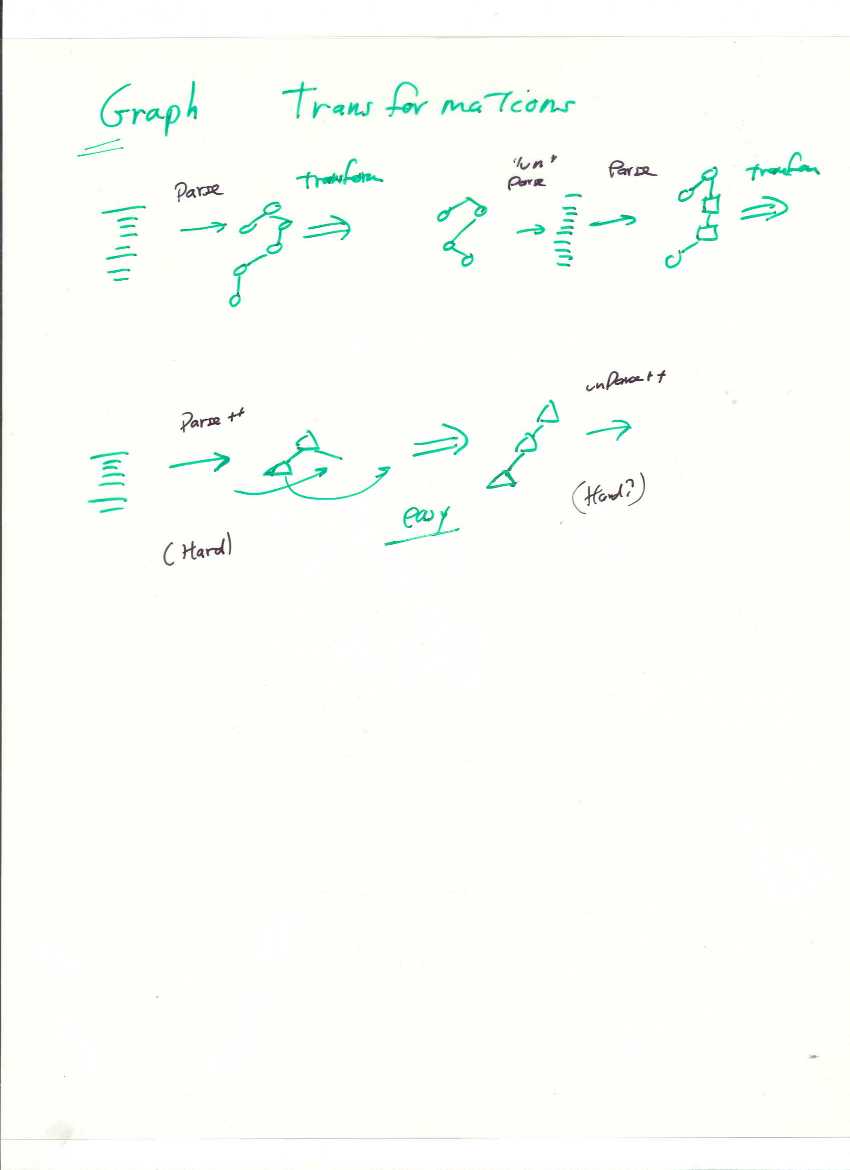 Graph Transformations
Parse transform "un" Parse transform
parse
Parse ++ unParse ++
easy (Hard?)
(Hard)